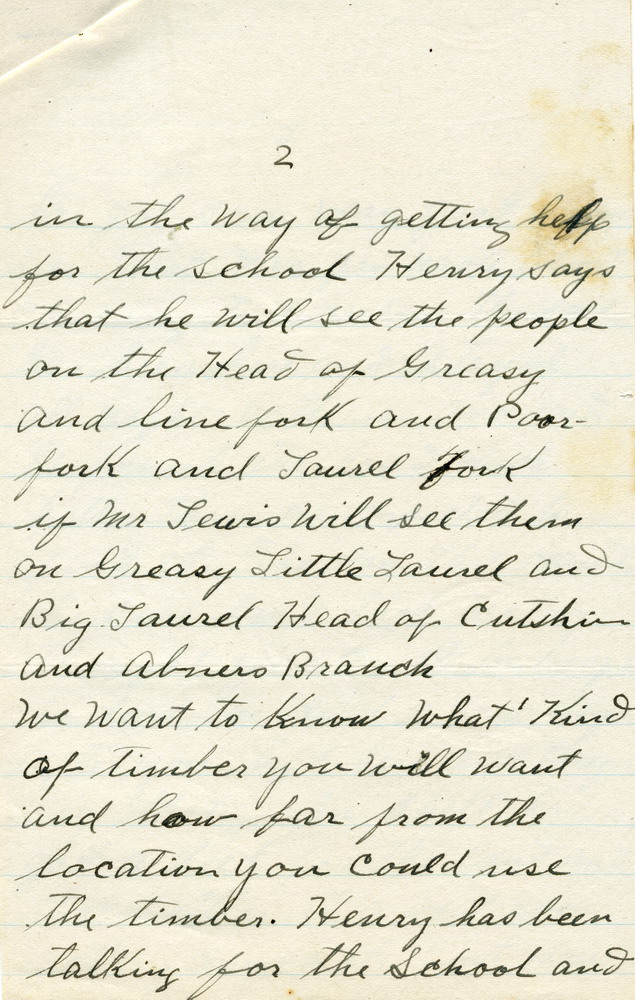 2
in the way of getting help
for the school Henry says
that he will see the people
on the Head of Greasy
and line fork and Poor-
fork and Laurel Fork
if Mr Lewis will see them
on Greasy Little Laurel and
Big Laurel Head of Cutshin
and Abners Branch
We want to know what' Kind
of timber you will want
and how far from the
location you could use
the timber. Henry has been
talking for the School and